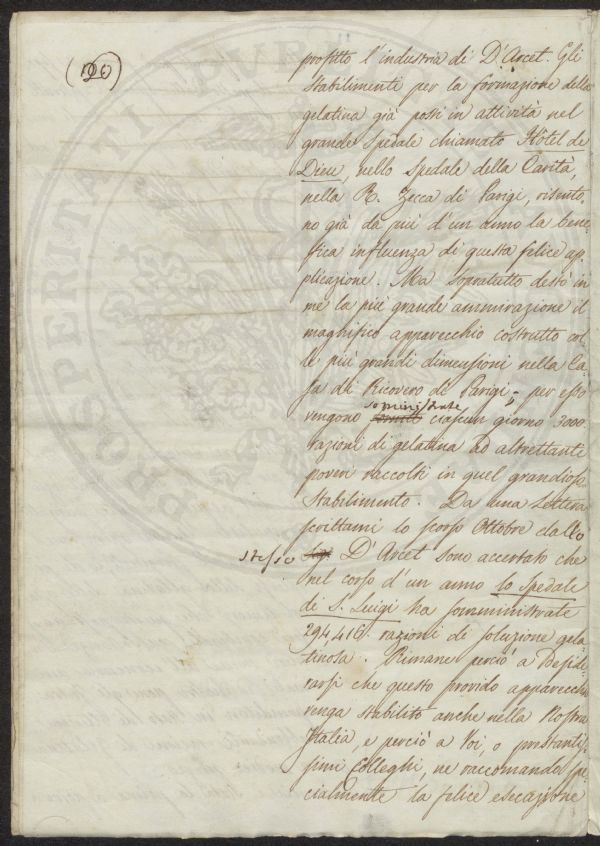 (120)
profitto l'industria di D'Arcet. Gli
Stabilimenti per la formazione della
gelatina già posti in attività nel
grande Spedale chiamato Hôtel de
Dieu, nello Spedale della Carità,
nella R. Zecca di Parigi, risento-
no già da più d'un anno la bene-
fica influenza di questa felice ap-
plicazione. Ma sopratutto destò in
me la più grande ammirazione il
magnifico apparecchio costrutto col-
le più grandi dimensioni nella Ca-
sa di Ricovero di Parigi; per esso
somministrate
vengono ciascun giorno 3000.
razioni di gelatina ad altrettanti
poveri raccolti in quel grandioso
Stabilimento. Da una Lettera
scrittami lo scorso Ottobre dallo
stesso D'Arcet sono accertato che
nel corso d'un anno lo Spedale
di S. Luigi ha somministrate
294,416. razioni di soluzione gela-
tinosa. Rimane perciò a Deside-
rarsi che questo provido apparecchio
venga stabilito anche nella Nostra
Italia, e perciò a Voi, o prestantis-
simi Colleghi, ne raccomando spe-
cialmente la felice esecuzione
PROSPERITATI PUBLICAE